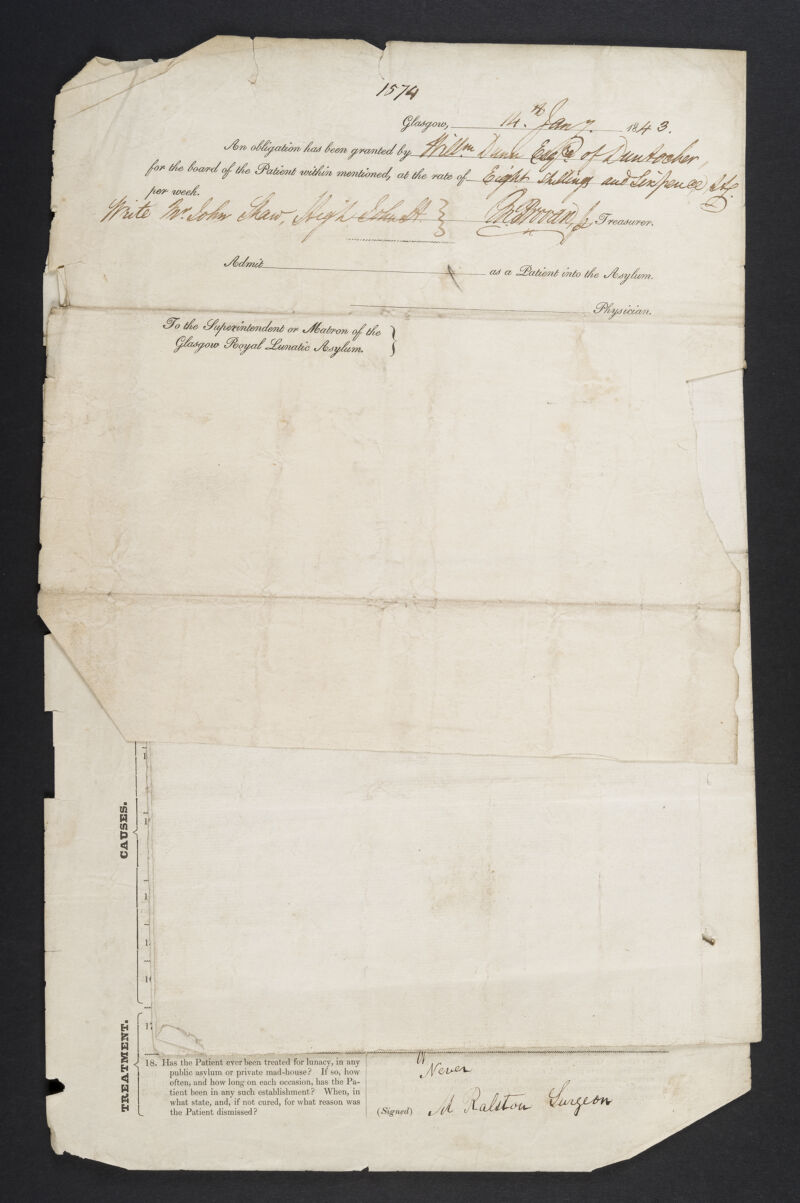 1574
Glasgow, 14th Jany. 1843.
An obligation has been granted by Willm Dunn Esqre of Duntocher,
for the board of the Patient within mentioned, at the rate of Eight Shillings and Sixpence Stg
per week.
Write Mr. John Shaw, High John St. } Treasurer.
Admit as a Patient into the Asylum.
Physician.
To the Superintendent or Matron of the
Glasgow Royal Lunatic Asylum. }
CAUSES.
TREATMENT.
18. Has the Patient ever been treated for lunacy, in any
public asylum or private mad-house? If so, how
often, and how long on each occasion, has the Pa-
tient been in any such establishment? When, in
what state, and, if not cured, for what reason was
the Patient dismissed?
Never
(Signed) M Ralston Surgeon